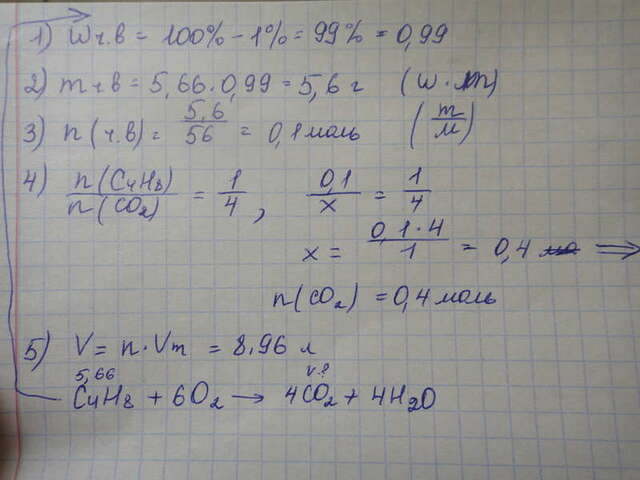 1) Wч.в = 100% - 1% = 99% = 0,99
2) m ч.в = 5,66 · 0,99 = 5,6 г (w · m)
3) n (ч.в) = 5,6/56 = 0,1 моль (m/M)
4) n(C4H8)/n(CO2) = 1/4, 0,1/x = 1/4
x = 0,1·4/1 = 0,4 ⇒
n(CO2) = 0,4 моль
5) V = n · Vm = 8,96 л
5,66 v-?
C4H8 + 6O2 → 4CO2 + 4H2O